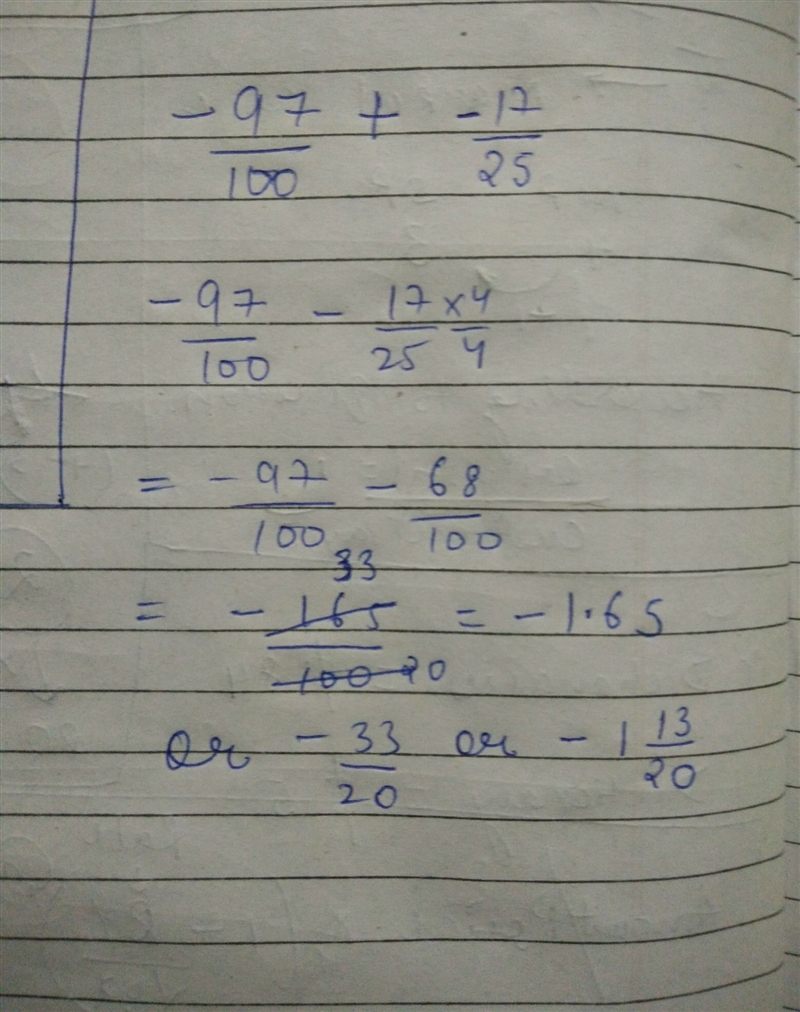 -97/100 + -17/25
-97/100 - 17/25 ×4/4
= -97/100 - 68/100
33
= - 165/100 20 = -1.65
or -33/20 or -1 13/20